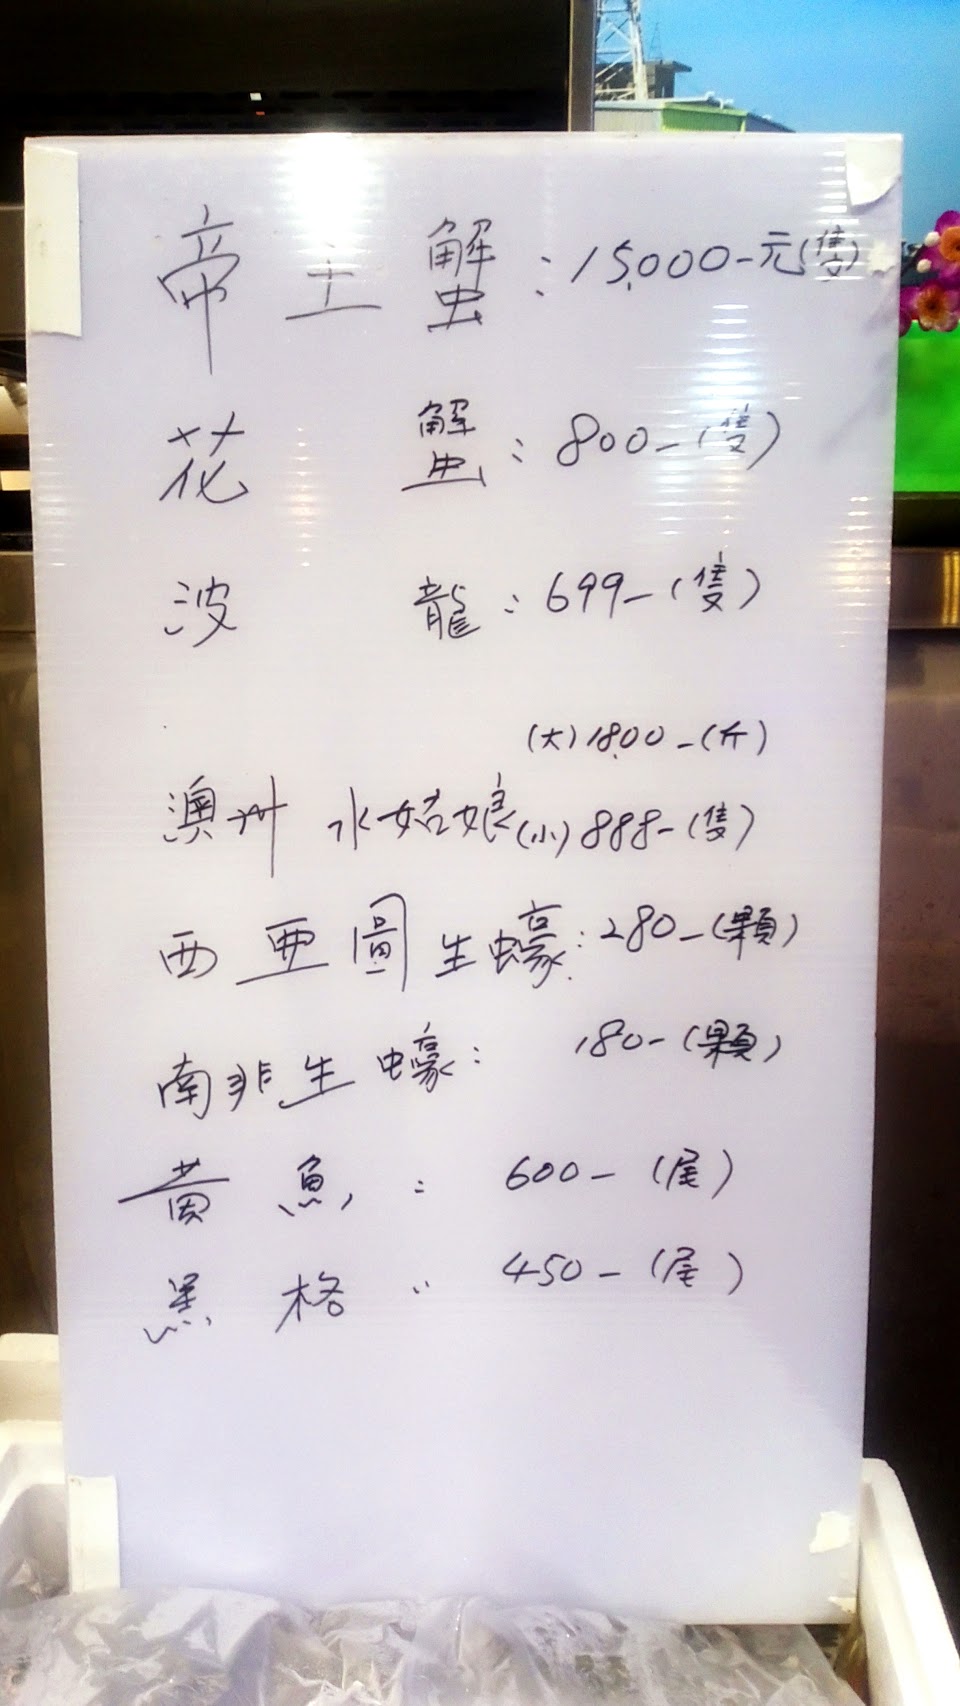 帝王蟹:15,000-元(隻)
花蟹:800-(隻)
波龍:699-(隻)
(大)1800-(斤)
澳州水姑娘(小)888-(隻)
西亜圖生蠔:280-(顆)
南非生蠔:180-(顆)
黃魚:600-(尾)
黑格:450-(尾)